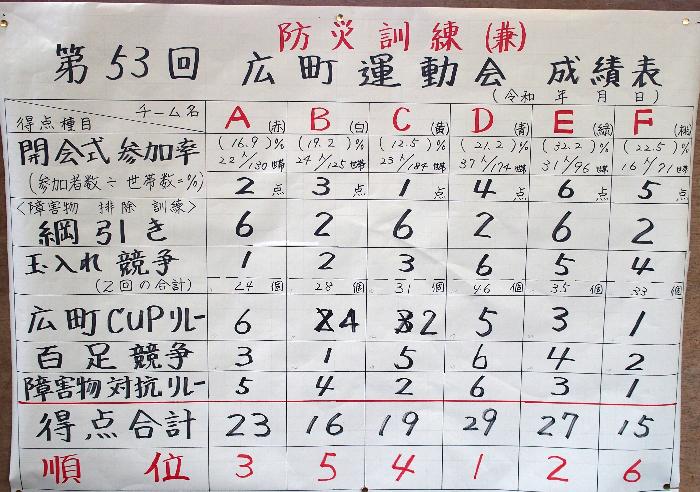 防災訓練(兼)
第53回 広町運動会 成績表
(令和 年 月 日)
得点種目 チーム名 A(赤) B(白) C(黄) D(青) E(緑) F(桃)
開会式参加率 (16.9)% (19.2)% (12.5)% (21.2)% (32.2)% (22.5)%
22人/130世帯 24人/125世帯 23人/184世帯 37人/174世帯 31人/96世帯 16人/71世帯
(参加者数÷世帯数=%) 2点 3点 1点 4点 6点 5点
<障害物 排除 訓練>
綱引き 6 2 6 2 6 2
玉入れ競争 1 2 3 6 5 4
(2回の合計) 24個 28個 31個 46個 35個 33個
広町CUPリレー 6 4 2 5 3 1
百足競争 3 1 5 6 4 2
障害物対抗リレー 5 4 2 6 3 1
得点合計 23 16 19 29 27 15
順位 3 5 4 1 2 6